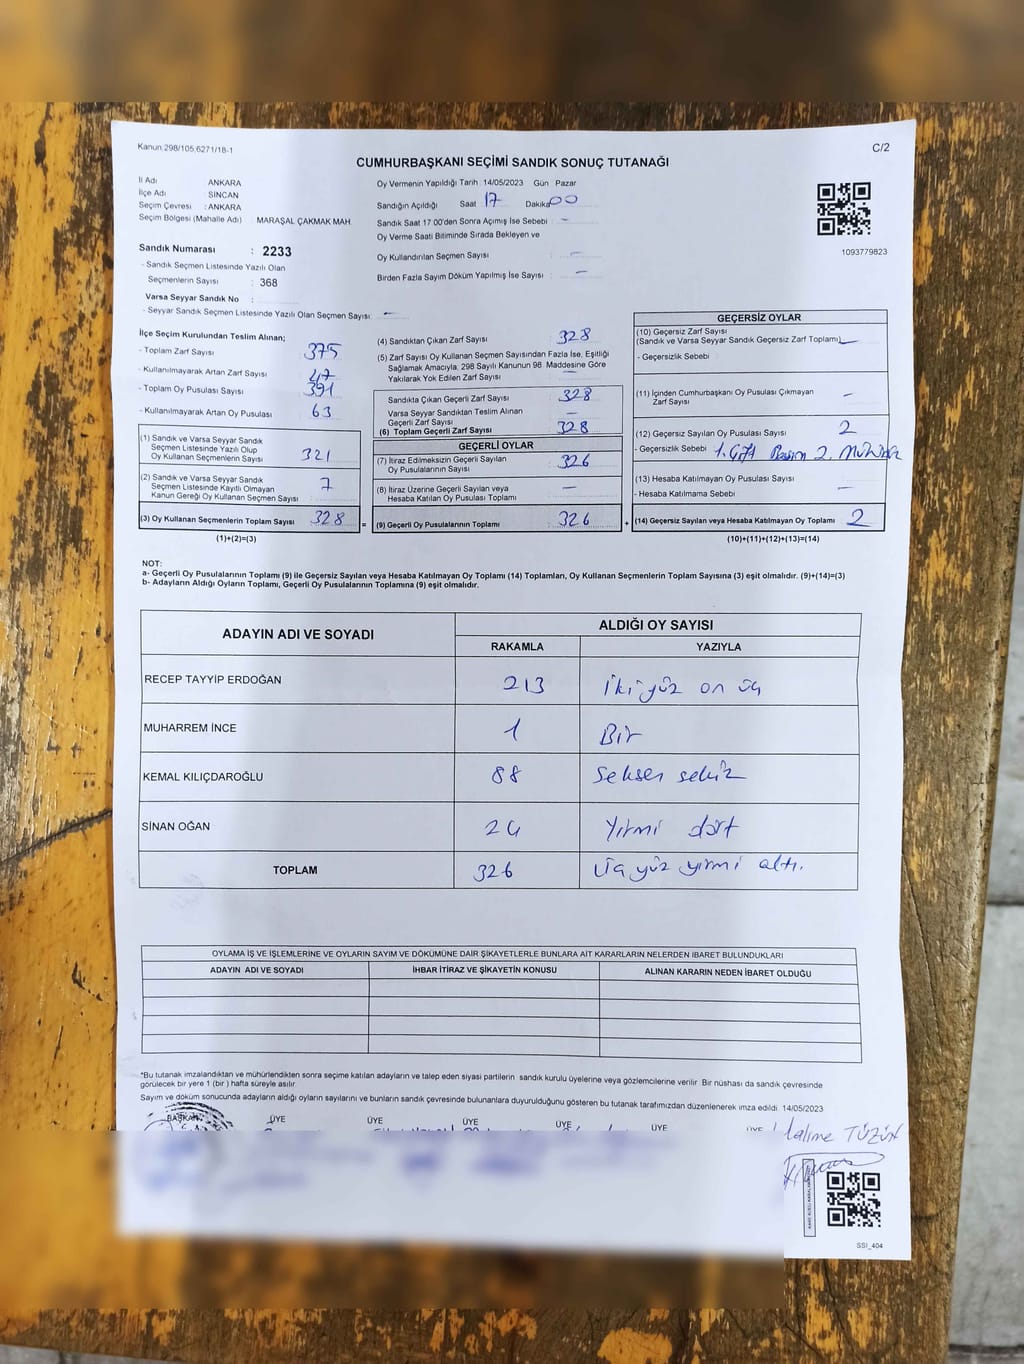 Kanun 298/105,6271/18-1
C/2
CUMHURBAŞKANI SEÇİMİ SANDIK SONUÇ TUTANAĞI
İl Adı ANKARA
İlçe Adı : SİNCAN
Seçim Çevresi : ANKARA
Seçim Bölgesi (Mahalle Adı) MARAŞAL ÇAKMAK MAH.
Sandık Numarası : 2233
- Sandık Seçmen Listesinde Yazılı Olan
Seçmenlerin Sayısı : 368
Varsa Seyyar Sandık No :
- Seyyar Sandık Seçmen Listesinde Yazılı Olan Seçmen Sayısı: —
Oy Vermenin Yapıldığı Tarih 14/05/2023 Gün Pazar
Sandığın Açıldığı Saat 17 Dakika 00
Sandık Saat 17.00'den Sonra Açımış İse Sebebi : —
Oy Verme Saati Bitiminde Sırada Bekleyen ve
Oy Kullandırılan Seçmen Sayısı : —
Birden Fazla Sayım Döküm Yapılmış İse Sayısı : —
1093779823
İlçe Seçim Kurulundan Teslim Alınan;
- Toplam Zarf Sayısı 375
- Kullanılmayarak Artan Zarf Sayısı 47
- Toplam Oy Pusulası Sayısı 391
- Kullanılmayarak Artan Oy Pusulası 63
(1) Sandık ve Varsa Seyyar Sandık
Seçmen Listesinde Yazılı Olup
Oy Kullanan Seçmenlerin Sayısı 321
(2) Sandık ve Varsa Seyyar Sandık
Seçmen Listesinde Kayıtlı Olmayan
Kanun Gereği Oy Kullanan Seçmen Sayısı : 7
(3) Oy Kullanan Seçmenlerin Toplam Sayısı 328 =
(1)+(2)=(3)
(4) Sandıktan Çıkan Zarf Sayısı 328
(5) Zarf Sayısı Oy Kullanan Seçmen Sayısından Fazla İse, Eşitliği
Sağlamak Amacıyla, 298 Sayılı Kanunun 98. Maddesine Göre
Yakılarak Yok Edilen Zarf Sayısı —
Sandıkta Çıkan Geçerli Zarf Sayısı : 328
Varsa Seyyar Sandıktan Teslim Alınan
Geçerli Zarf Sayısı —
(6) Toplam Geçerli Zarf Sayısı : 328
GEÇERLİ OYLAR
(7) İtiraz Edilmeksizin Geçerli Sayılan
Oy Pusulalarının Sayısı : 326
(8) İtiraz Üzerine Geçerli Sayılan veya
Hesaba Katılan Oy Pusulası Toplamı : —
(9) Geçerli Oy Pusulalarının Toplamı : 326 +
GEÇERSİZ OYLAR
(10) Geçersiz Zarf Sayısı
(Sandık ve Varsa Seyyar Sandık Geçersiz Zarf Toplamı) —
- Geçersizlik Sebebi :
(11) İçinden Cumhurbaşkanı Oy Pusulası Çıkmayan
Zarf Sayısı —
(12) Geçersiz Sayılan Oy Pusulası Sayısı : 2
- Geçersizlik Sebebi : 1. Çift Basım 2.
(13) Hesaba Katılmayan Oy Pusulası Sayısı :
- Hesaba Katılmama Sebebi : —
(14) Geçersiz Sayılan veya Hesaba Katılmayan Oy Toplamı 2
(10)+(11)+(12)+(13)=(14)
NOT:
a- Geçerli Oy Pusulalarının Toplamı (9) ile Geçersiz Sayılan veya Hesaba Katılmayan Oy Toplamı (14) Toplamları, Oy Kullanan Seçmenlerin Toplam Sayısına (3) eşit olmalıdır. (9)+(14)=(3)
b- Adayların Aldığı Oyların Toplamı, Geçerli Oy Pusulalarının Toplamına (9) eşit olmalıdır.
ADAYIN ADI VE SOYADI ALDIĞI OY SAYISI
RAKAMLA YAZIYLA
RECEP TAYYİP ERDOĞAN 213 İki yüz on üç
MUHARREM İNCE 1 Bir
KEMAL KILIÇDAROĞLU 88 Seksen sekiz
SİNAN OĞAN 24 Yirmi dört
TOPLAM 326 Üç yüz yirmi altı.
OYLAMA İŞ VE İŞLEMLERİNE VE OYLARIN SAYIM VE DÖKÜMÜNE DAİR ŞİKAYETLERLE BUNLARA AİT KARARLARIN NELERDEN İBARET BULUNDUKLARI
ADAYIN ADI VE SOYADI İHBAR İTİRAZ VE ŞİKAYETİN KONUSU ALINAN KARARIN NEDEN İBARET OLDUĞU
*Bu tutanak imzalandıktan ve mühürlendikten sonra seçime katılan adayların ve talep eden siyasi partilerin sandık kurulu üyelerine veya gözlemcilerine verilir. Bir nüshası da sandık çevresinde
görülecek bir yere 1 (bir ) hafta süreyle asılır.
Sayım ve döküm sonucunda adayların aldığı oyların sayılarını ve bunların sandık çevresinde bulunanlara duyurulduğunu gösteren bu tutanak tarafımızdan düzenlenerek imza edildi. 14/05/2023
BAŞKAN ÜYE ÜYE ÜYE ÜYE ÜYE ÜYE
TÜZÜN
SSI_404